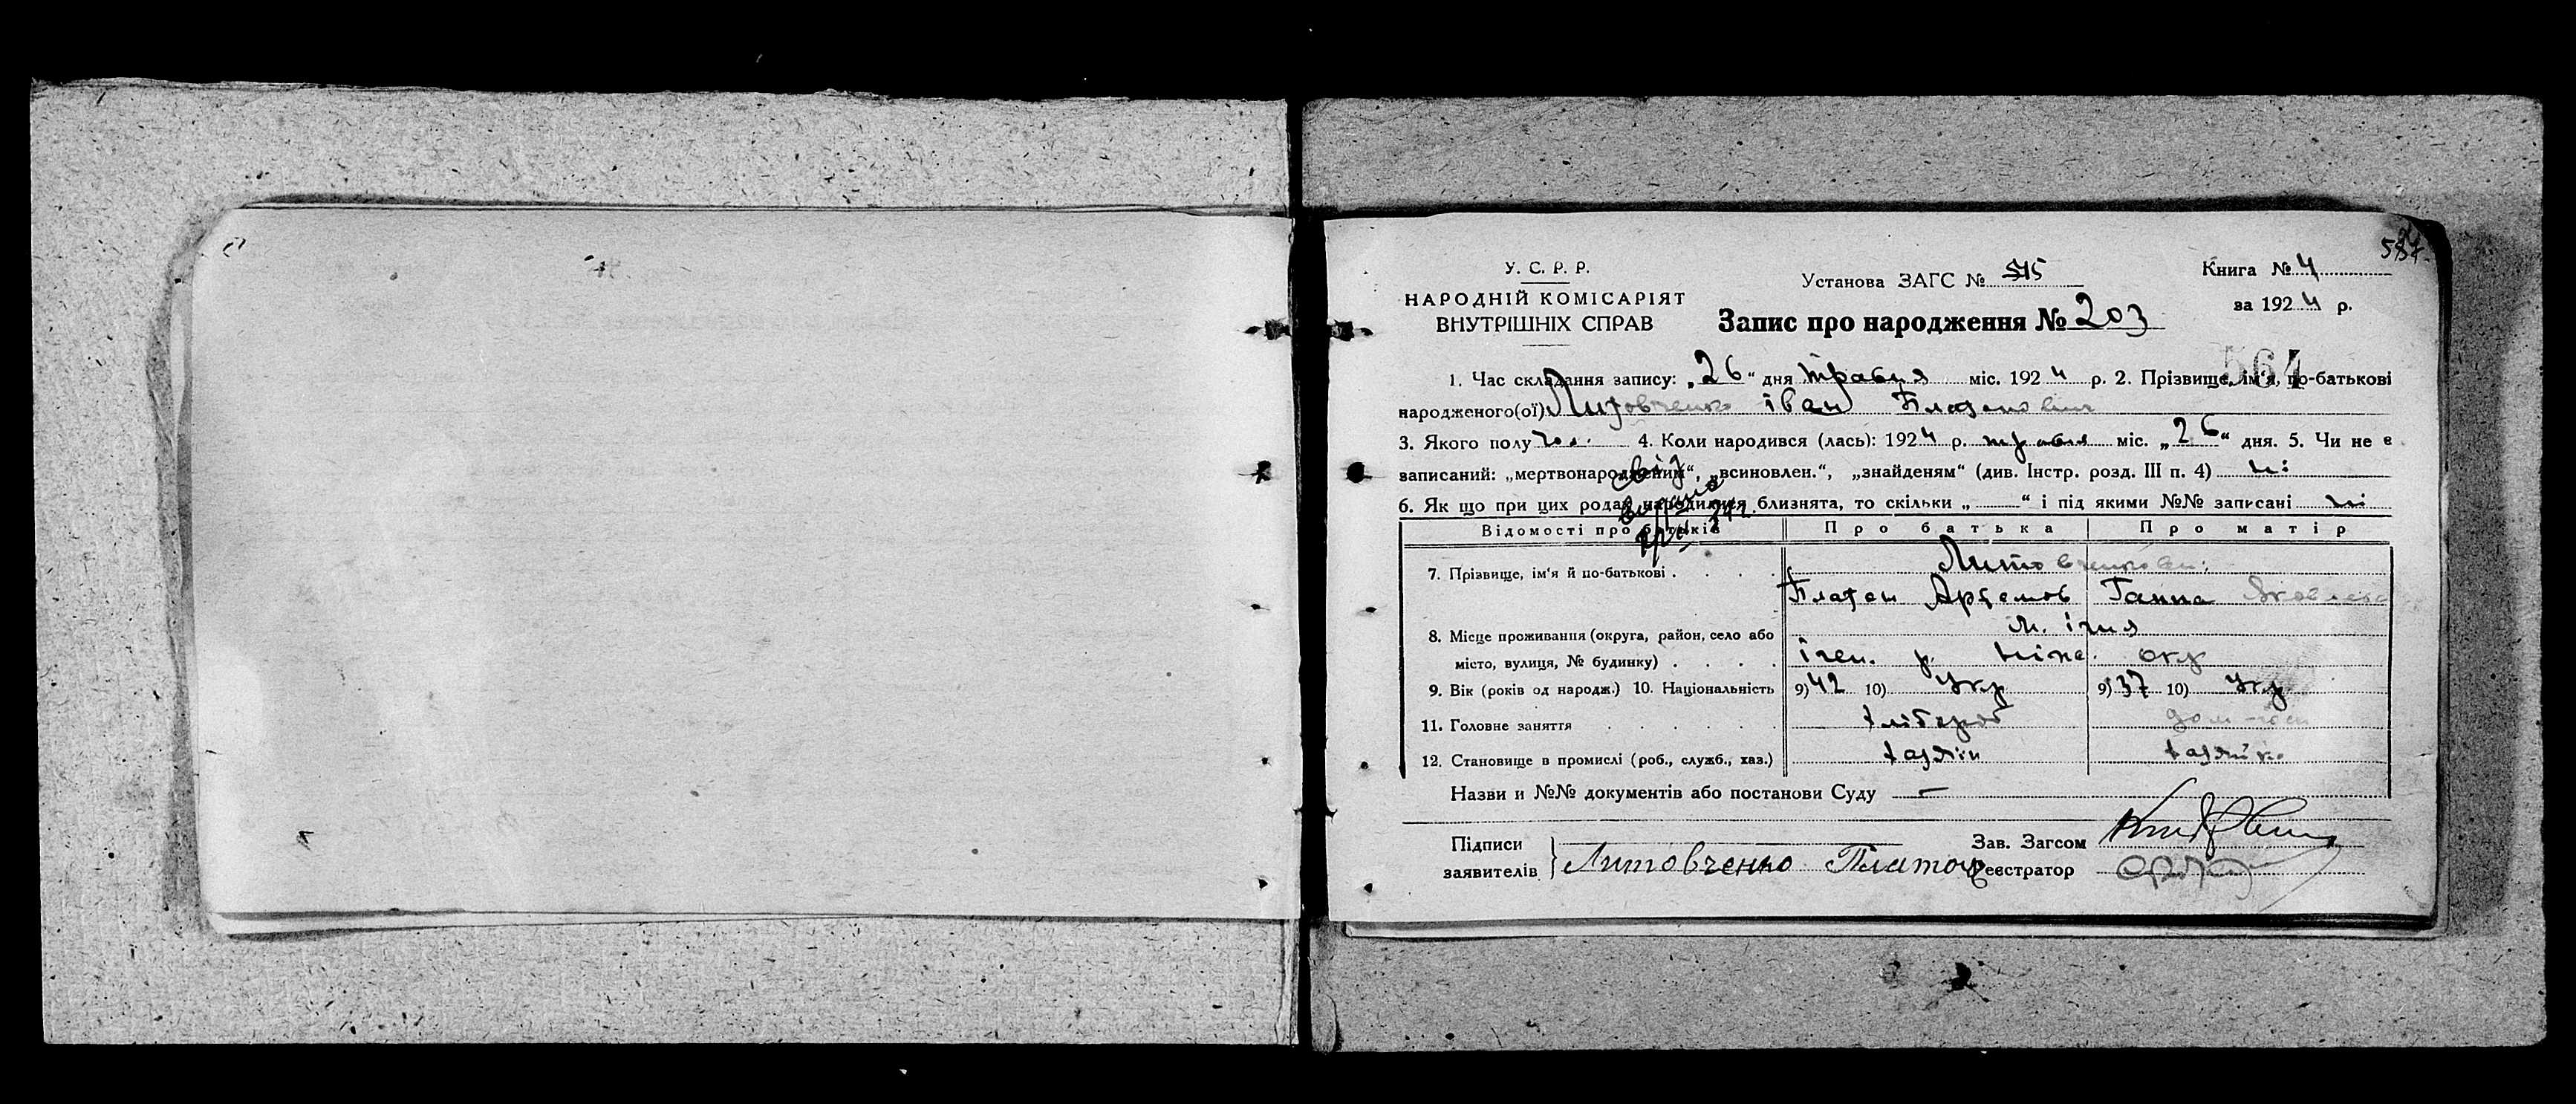 587.
У. С. Р. Р.
НАРОДНІЙ КОМІСАРІЯТ
ВНУТРІШНІХ СПРАВ
Установа ЗАГС №
Книга № 4
за 1924 р.
Запис про народження № 203
564
1. Час складання запису: „26“ дня травня міс. 1924 р. 2. Прізвище, ім'я, по-батькові
народженого(ої) Литовченко іван Платонович
3. Якого полу чол. 4. Коли народився (лась): 1924 р. травня міс. „26“ дня. 5. Чи не є
записаний: „мертвонародженим“, „всиновлен.“, „знайденям“ (див. Інстр. розд. III п. 4) ні
6. Як що при цих родах народилися близнята, то скільки „ “ і під якими №№ записані ні
Відомості про батьків Про батька Про матір
7. Прізвище, ім'я й по-батькові . . . . Литовченкови
Платон Артемов Ганна Яковлева
8. Місце проживання (округа, район, село або м. ічня
місто, вулиця, № будинку) . . . . ічен. р. Ніжн. окр
9. Вік (років од народж.) 10. Національність 9) 42 10) Укр 9) 37 10) Укр
11. Головне заняття . . . . . . хлібороб дом-гос
12. Становище в промислі (роб., служб., хаз.) хазяїн хазяйка
Назви и №№ документів або постанови Суду —
Підписи
заявителів } Литовченко Платон
Зав. Загсом
Реєстратор